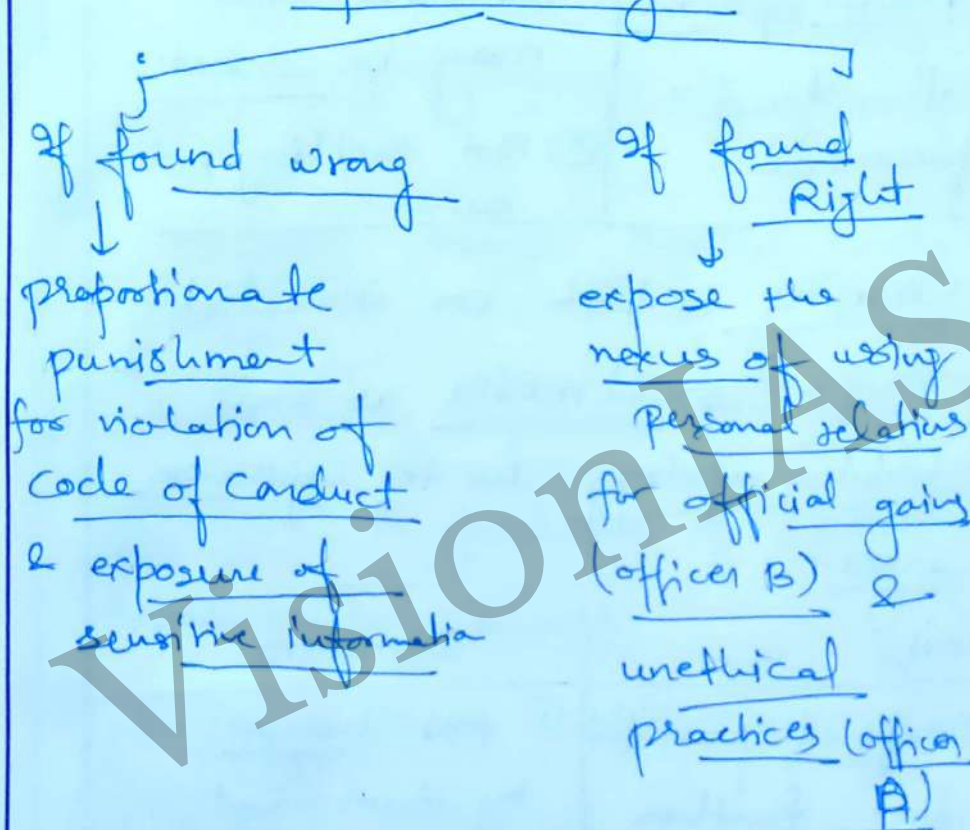 If found wrong
proportionate
punishment
for violation of
Code of Conduct
& exposure of
sensitive informatia
If found
Right
expose the
nexus of using
personal relations
for official gains
(officer B) &
unethical
practices (officer
A)
VisionIAS